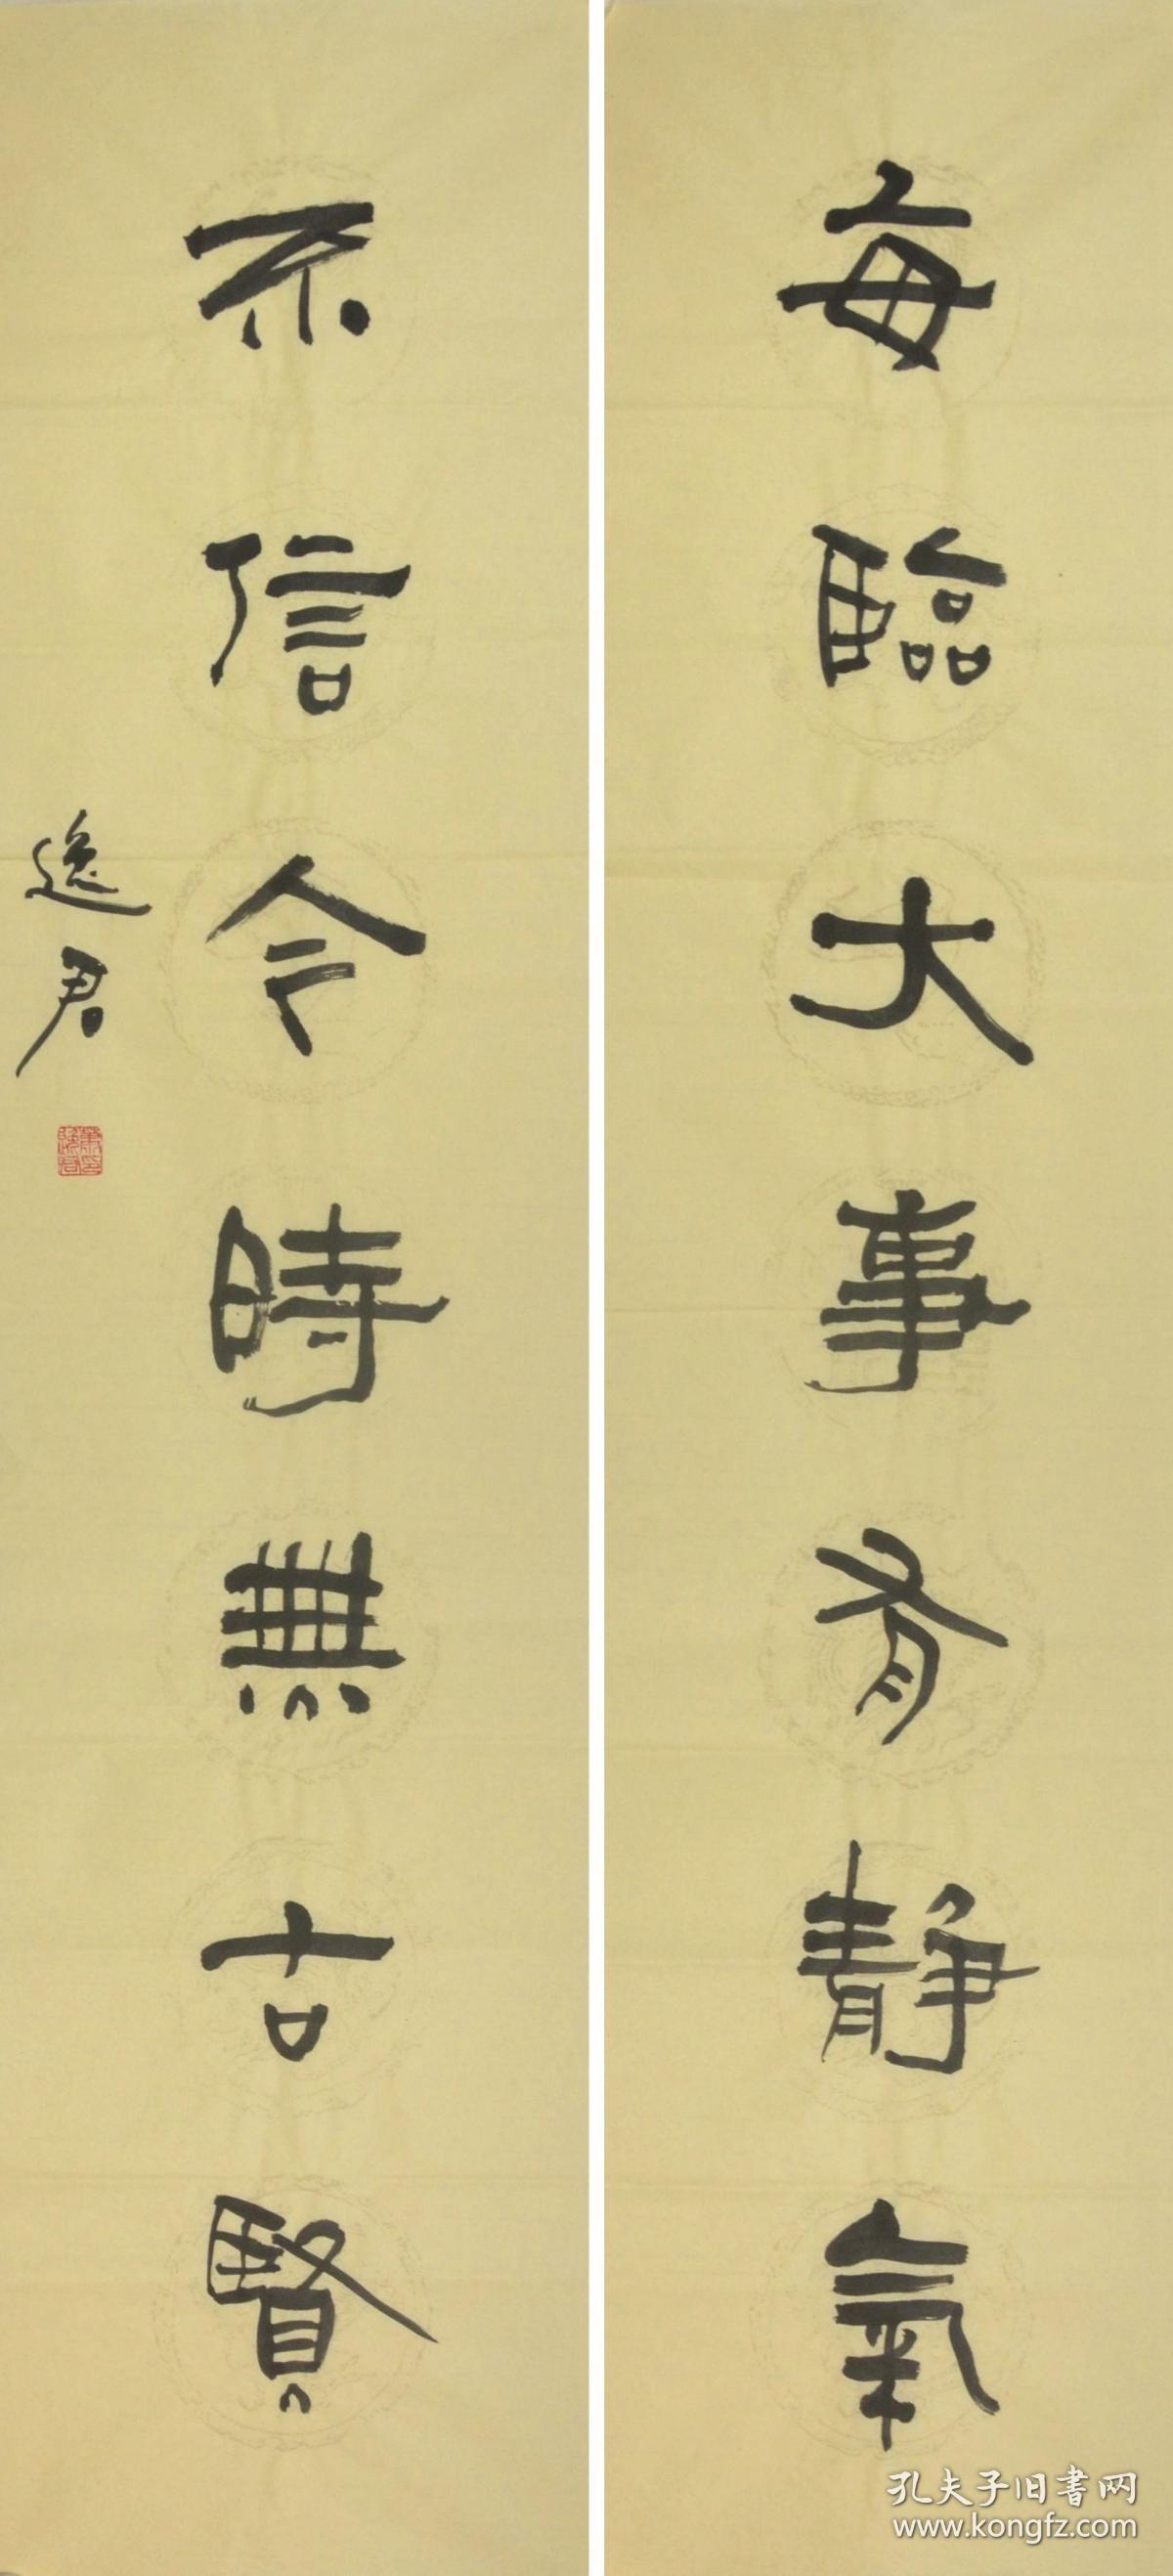 每臨大事有静氣
不信今時無古賢
逸君
孔夫子旧書网
www.kongfz.com